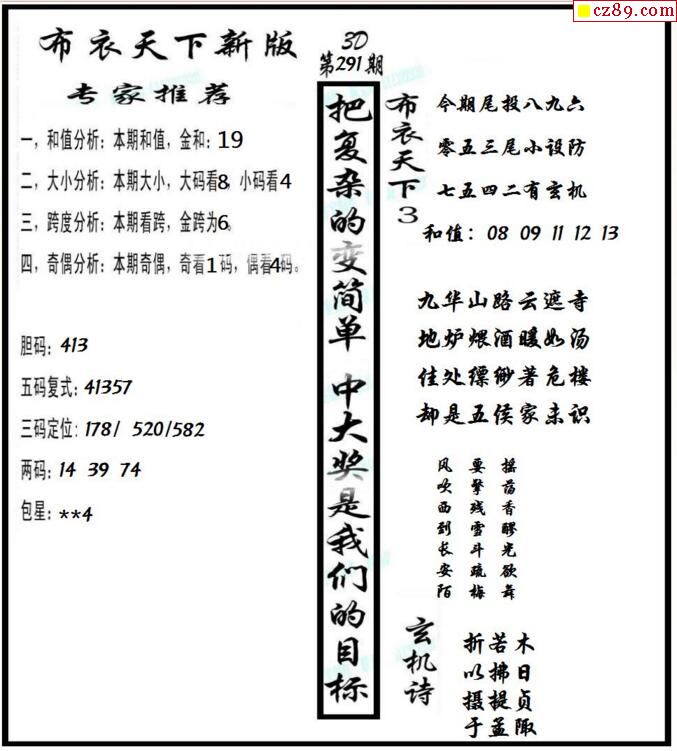 cz89.com
布衣天下新版
专家推荐
一，和值分析：本期和值，金和：19
二，大小分析：本期大小，大码看8，小码看4
三，跨度分析：本期看跨，金跨为6。
四，奇偶分析：本期奇偶，奇看1码，偶看4码。
胆码：413
五码复式：41357
三码定位：178/ 520/582
两码：14 39 74
包星：**4
3D
第291期
把复杂的变简单 中大奖是我们的目标
布衣天下3
今期尾投八九六
零五三尾小设防
七五四二有玄机
和值：08 09 11 12 13
九华山路云遮寺
地炉煨酒暖如汤
佳处缥缈著危楼
却是五侯家未识
风吹西到长安陌
要擎残雪斗疏梅
摇茵香醪光欲舞
玄机诗
折若木
以拂日
摄提贞
于孟陬